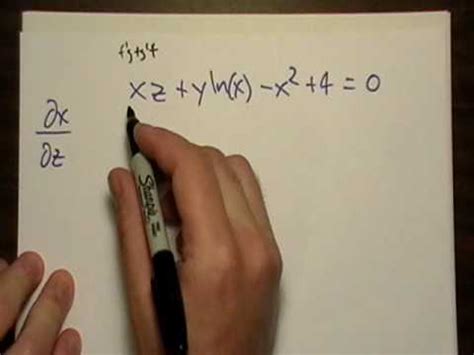 f'g+g'f
xz + y ln(x) - x² + 4 = 0
∂x
∂z
Sharpie